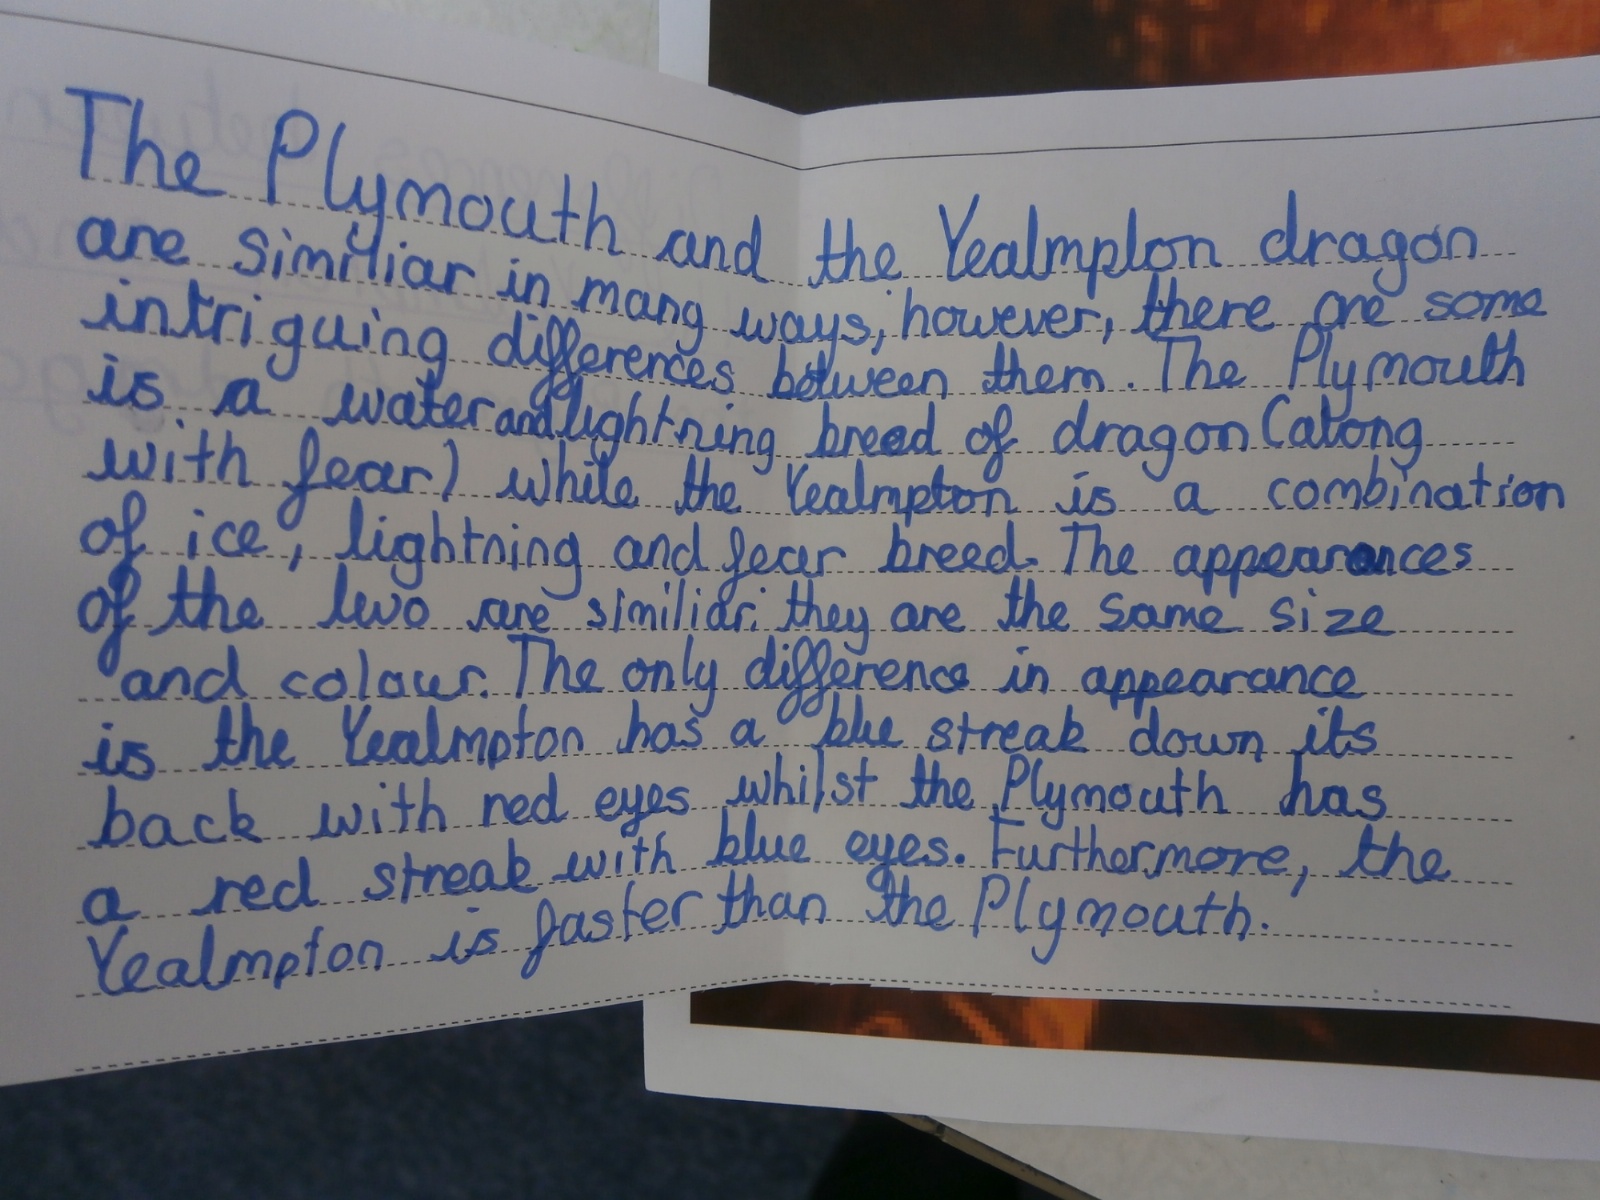 The Plymouth and the Yealmpton dragon
are similiar in many ways; however, there are some
intriguing differences between them. The Plymouth
is a water and lightning breed of dragon (along
with fear) while the Yealmpton is a combination
of ice, lightning and fear breed. The appearances
of the two are similiar: they are the same size
and colour. The only difference in appearance
is the Yealmpton has a blue streak down its
back with red eyes whilst the Plymouth has
a red streak with blue eyes. Furthermore, the
Yealmpton is faster than the Plymouth.